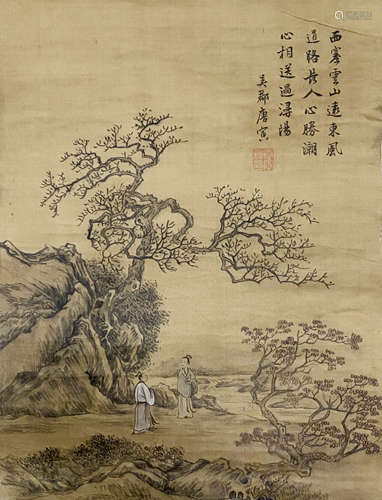 西塞雲山遠東風
道路長人心勝潮
心相送過潯陽
吳郡唐寅